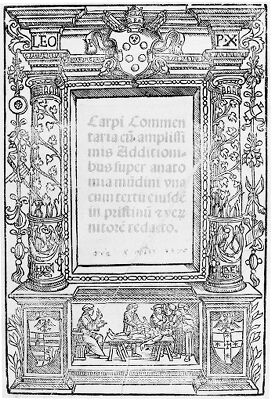 LEO P·X·
Carpi Commen
taria cũ amplissi
mis Additioni
bus super anato
mia mũdini vna
cum textu eiusdẽ
in pristinũ & ver
nitorẽ redacto.